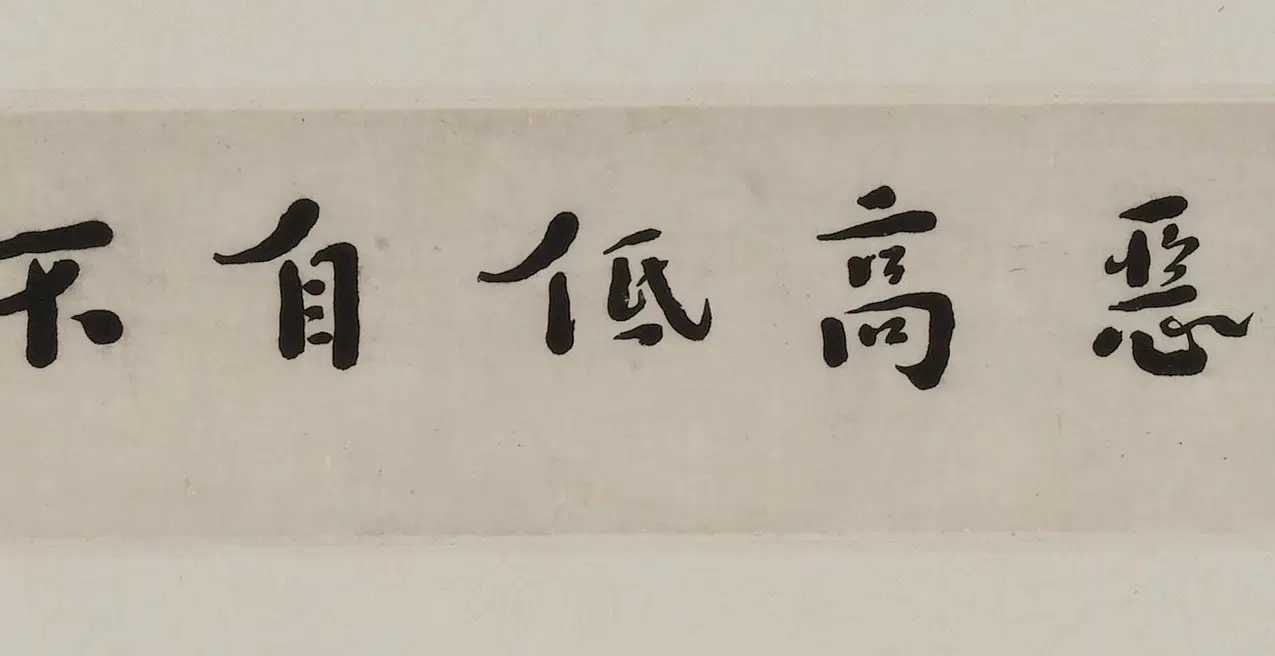 惡高低自不